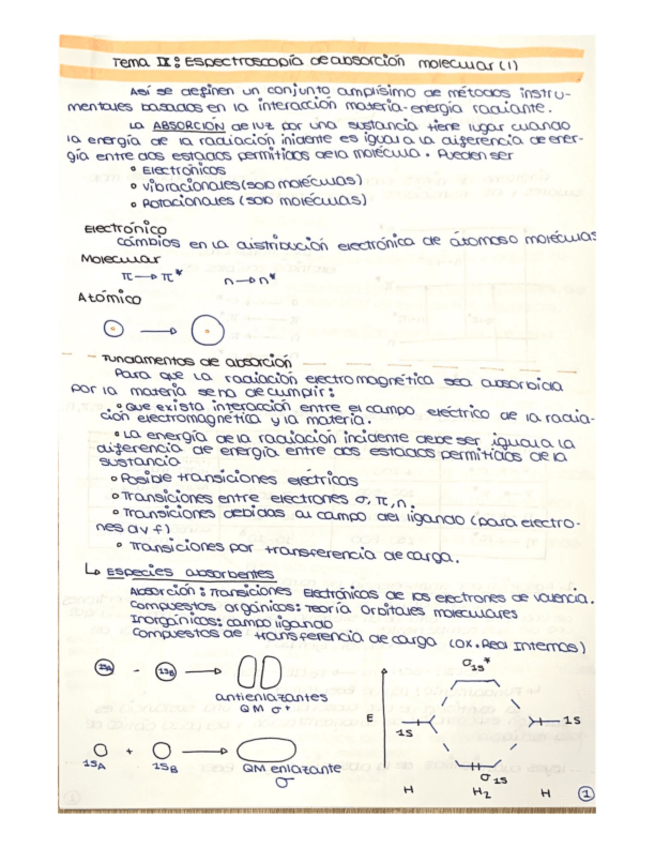 Tema IX: Espectroscopía de absorción molecular (1)
Así se definen un conjunto amplísimo de métodos instru-
mentales basados en la interacción materia-energía radiante.
La ABSORCIÓN de luz por una sustancia tiene lugar cuando
la energía de la radiación inidente es igual a la diferencia de ener-
gía entre dos estados permitidos de la molécula. Pueden ser
° Electrónicos
° Vibracionales (solo moléculas)
° Rotacionales (solo moléculas)
Electrónico
cambios en la distribución electrónica de átomos o moléculas
Molecular
π → π* n → n*
Atómico
Fundamentos de absorción
Para que la radiación electromagnética sea absorbida
por la materia se ha de cumplir:
° Que exista interacción entre el campo eléctrico de la radia-
ción electromagnética y la materia.
° La energía de la radiación incidente debe ser igual a la
diferencia de energía entre dos estados permitidos de la
sustancia
° Posible transiciones eléctricas
° Transiciones entre electrones σ, π, n.
° Transiciones debidas al campo del ligando (para electro-
nes d y f)
° Transiciones por transferencia de carga.
↳ Especies absorbentes
Absorción: Transiciones Electrónicas de los electrones de valencia.
Compuestos orgánicos: Teoría orbitales moleculares
Inorgánicos: campo ligando
Compuestos de transferencia de carga (Ox. Red Internos)
1SA - 1SB →
antienlazantes
OM σ*
1SA + 1SB →
OM enlazante
σ
E
σ1s*
1S 1S
σ1s
H H2 H
1